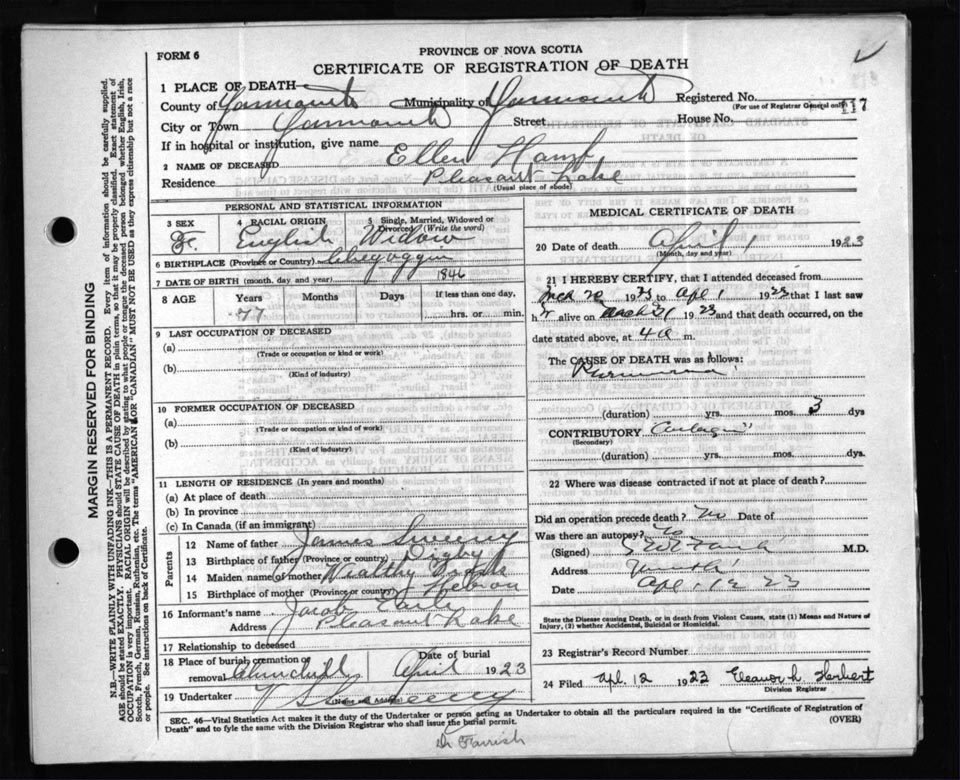 FORM 6
PROVINCE OF NOVA SCOTIA
CERTIFICATE OF REGISTRATION OF DEATH
1 PLACE OF DEATH
County of Yarmouth Municipality of Yarmouth Registered No.
(For use of Registrar General only) 117
City or Town Yarmouth Street House No.
If in hospital or institution, give name
2 NAME OF DECEASED Ellen
Residence Pleasant Lake
(Usual place of abode)
PERSONAL AND STATISTICAL INFORMATION
3 SEX 4 RACIAL ORIGIN 5 Single, Married, Widowed or Divorced (Write the word)
F. English Widow
6 BIRTHPLACE (Province or Country) Chegoggin
7 DATE OF BIRTH (month, day and year) 1846
8 AGE Years Months Days If less than one day,
77 hrs. or min.
9 LAST OCCUPATION OF DECEASED
(a)
(Trade or occupation or kind or work)
(b)
(Kind of industry)
10 FORMER OCCUPATION OF DECEASED
(a)
(Trade or occupation or kind of work)
(b)
(Kind of industry)
11 LENGTH OF RESIDENCE (In years and months)
(a) At place of death
(b) In province
(c) In Canada (if an immigrant)
Parents
12 Name of father James Sweeny
13 Birthplace of father (Province or country) Digby
14 Maiden name of mother Wealthy
15 Birthplace of mother (Province or country) Hebron
16 Informant's name Jacob Earle
Address Pleasant Lake
17 Relationship to deceased
18 Place of burial, cremation or removal Churchill Date of burial April 1923
19 Undertaker V S Sweeny
(Name and Address)
MEDICAL CERTIFICATE OF DEATH
20 Date of death April 1 1923
(Month, day and year)
21 I HEREBY CERTIFY, that I attended deceased from
Mch 1923 to Apl 1 1923 that I last saw
h r alive on March 31 1923 and that death occurred, on the
date stated above, at 4 a m.
The CAUSE OF DEATH was as follows:
Pneumonia
(duration) yrs. mos. 3 dys
CONTRIBUTORY
(Secondary)
(duration) yrs. mos. dys.
22 Where was disease contracted if not at place of death?
Did an operation precede death? No Date of
Was there an autopsy? No
(Signed) Farish M.D.
Address Yarmouth
Date Apl, 12 23
State the Disease causing Death, or in death from Violent Causes, state (1) Means and Nature of
Injury, (2) whether Accidental, Suicidal or Homicidal.
23 Registrar's Record Number
24 Filed Apl. 12 1923 Eleanor h Herbert
Division Registrar
SEC. 46—Vital Statistics Act makes it the duty of the Undertaker or person acting as Undertaker to obtain all the particulars required in the "Certificate of Registration of
Death" and to fyle the same with the Division Registrar who shall issue the burial permit.
(OVER)
Dr Farrish
MARGIN RESERVED FOR BINDING
N.B.—WRITE PLAINLY WITH UNFADING INK—THIS IS A PERMANENT RECORD. Every item of information should be carefully supplied.
AGE should be stated EXACTLY. PHYSICIANS should STATE CAUSE OF DEATH in plain terms, so that it may be properly classified. Exact statement of
OCCUPATION is very important. RACIAL ORIGIN will be described by stating to what people or tongue the deceased person belonged whether English, Irish,
Scotch, French, German, Russian, Ruthenian, etc. The terms "AMERICAN" OR "CANADIAN" MUST NOT BE USED as they express citizenship but not a race
or people. See instructions on back of Certificate.